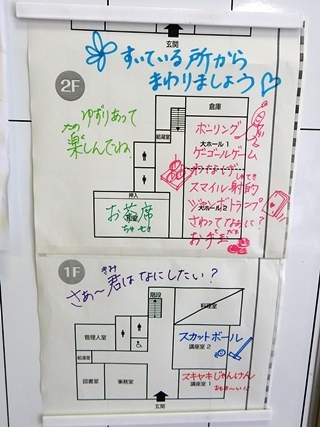 玄関
すいている所から
まわりましょう
2F
ゆずりあって
楽しんでね。
たの
倉庫
給湯室
大ホール1
ボーリング
ゲーゴールゲーム
わなげ
スマイル射的
しゃてき
大ホール2
ジャンボトランプ
さわってなぁに?
おみ
押入
お茶席
和室
ちゃ せき
1F
さぁ〜君はなにしたい?
きみ
階段
料理室
管理人室
スカットボール
講座室 2
給湯室
図書室
事務室
スキヤキじゃんけん
講座室 1
玄関